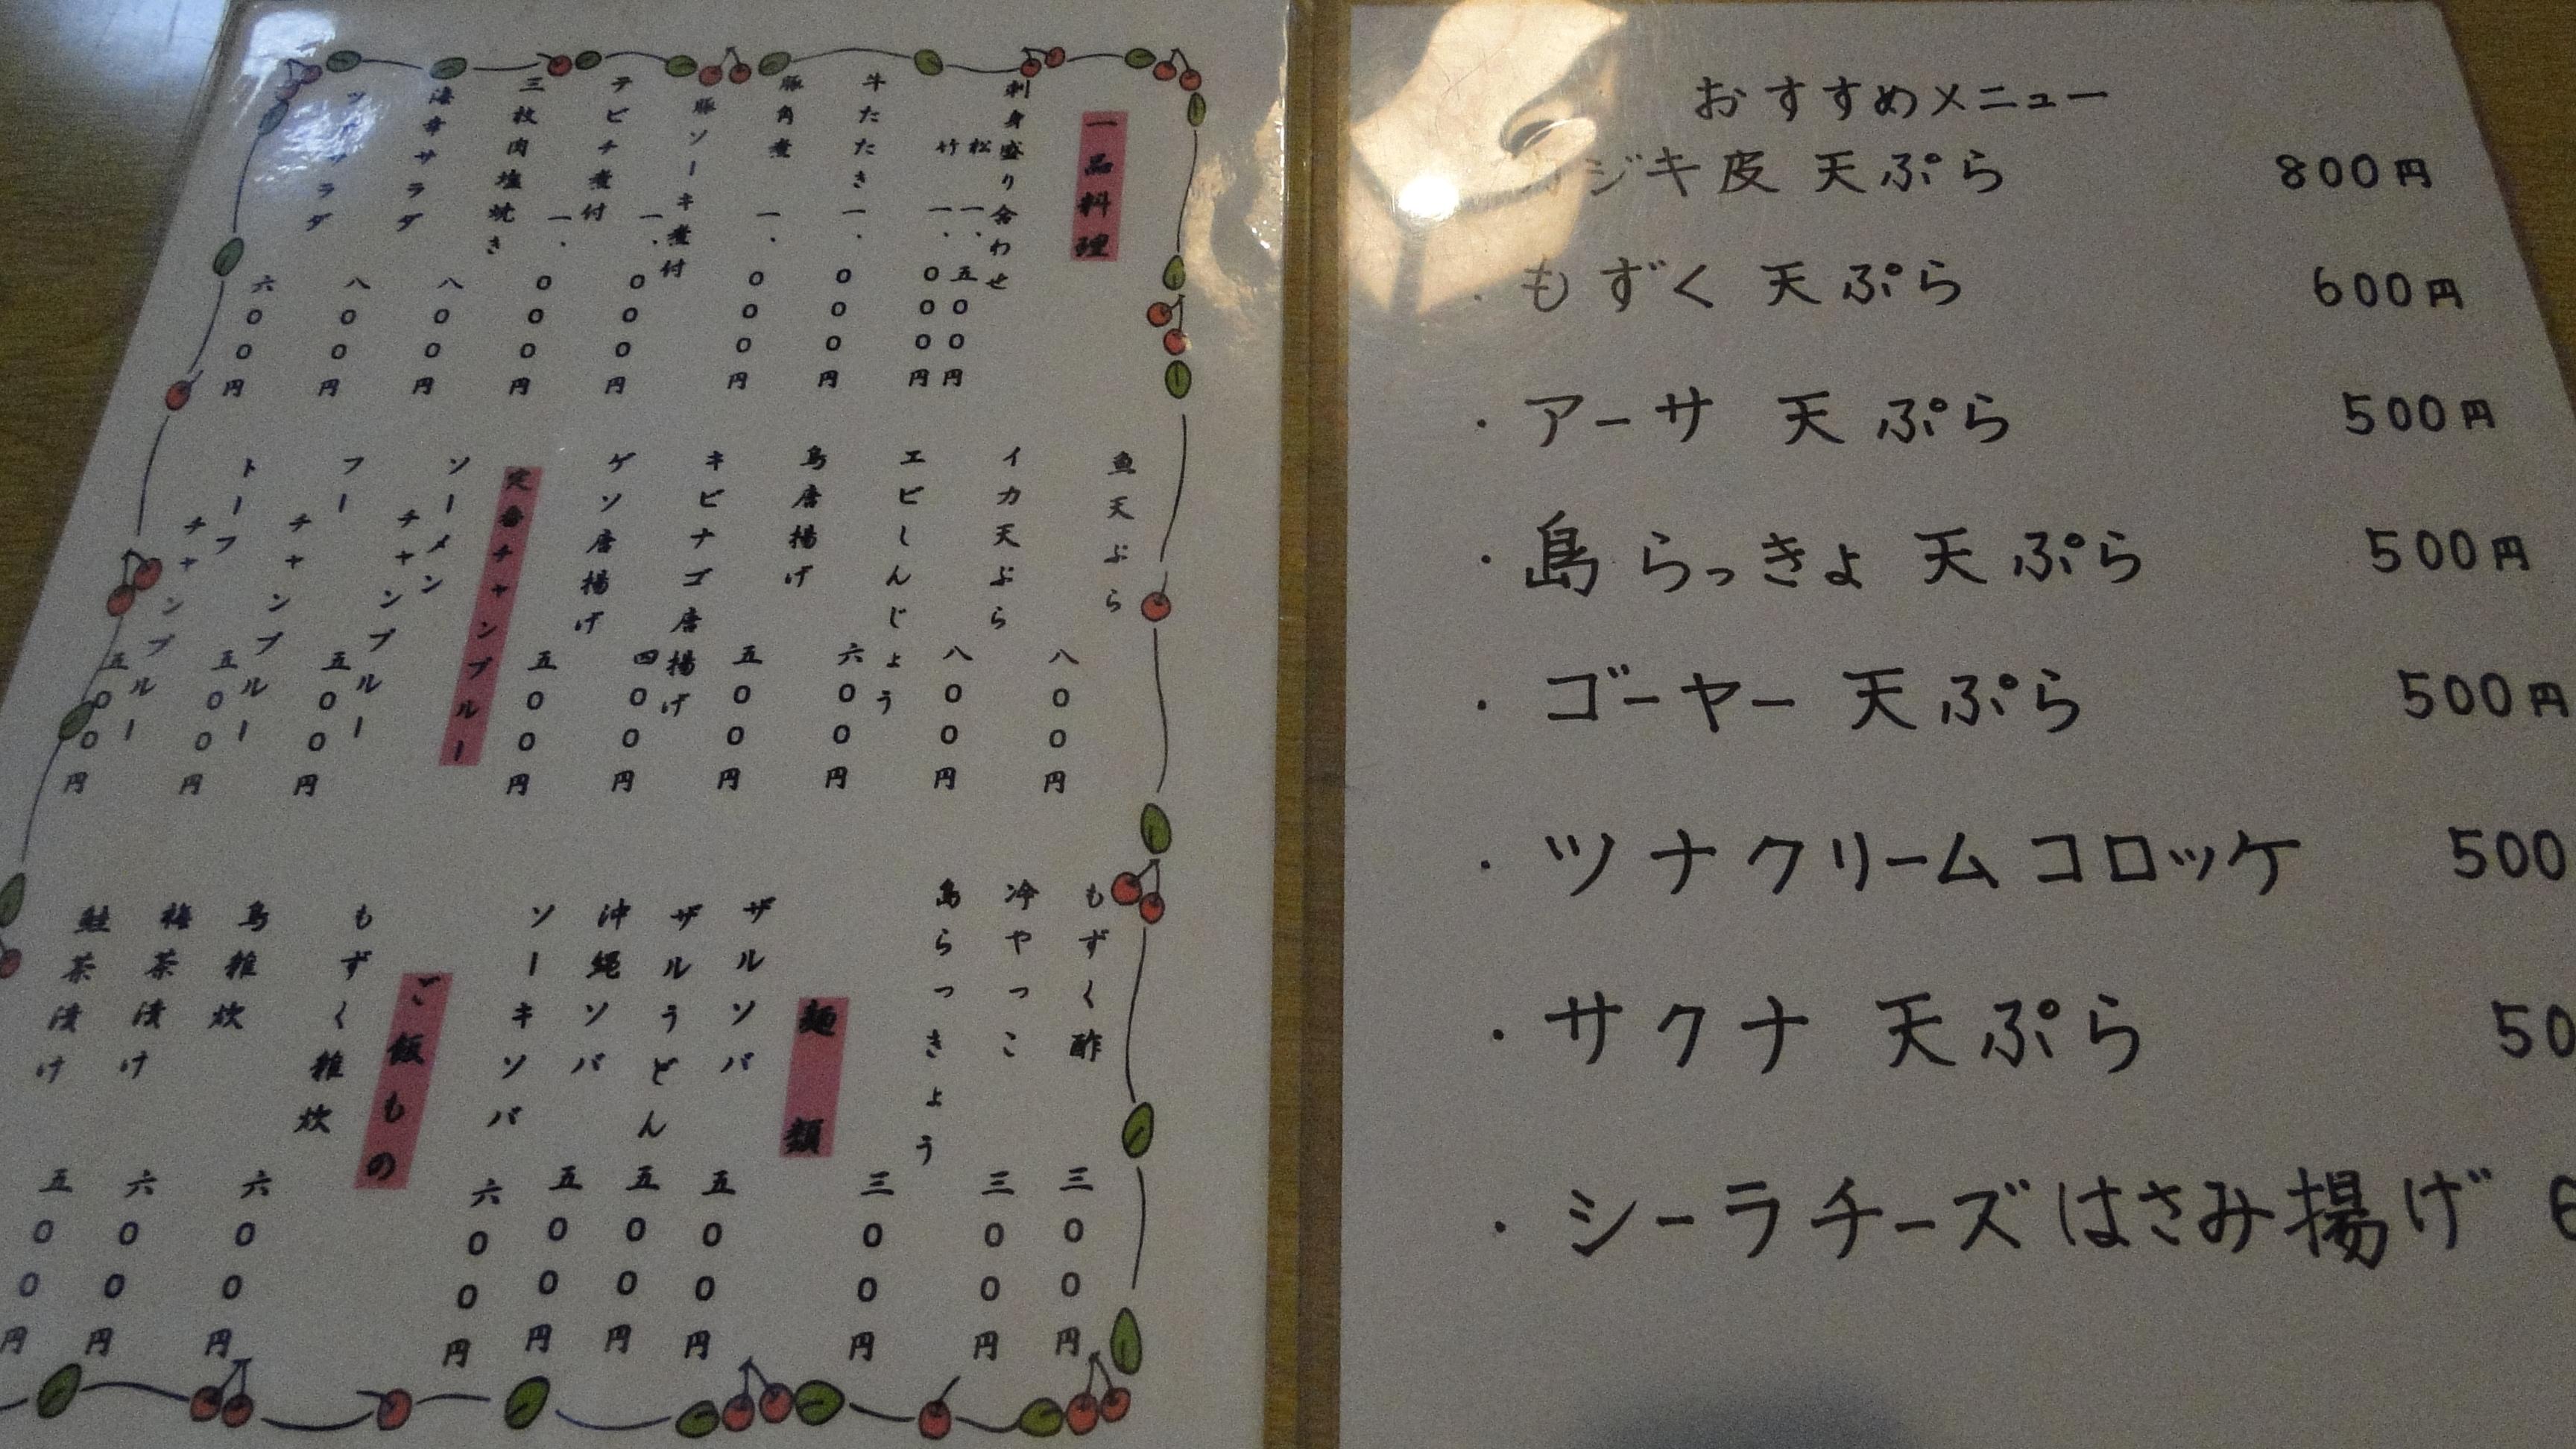 一品料理
刺身盛り合わせ
松 一、五〇〇円
竹 一、〇〇〇円
牛たたき 一、〇〇〇円
豚角煮 一、〇〇〇円
豚ソーキ煮付 一、〇〇〇円
テビチ煮付 一、〇〇〇円
三枚肉塩焼き 八〇〇円
海幸サラダ 八〇〇円
サラダ 六〇〇円
魚天ぷら 八〇〇円
イカ天ぷら 八〇〇円
エビしんじょう 六〇〇円
鳥唐揚げ 五〇〇円
キビナゴ唐揚げ 四〇〇円
ゲソ唐揚げ 五〇〇円
定番チャンプルー
ソーメンチャンプルー 五〇〇円
フーチャンプルー 五〇〇円
トーフチャンプルー 五〇〇円
もずく酢 三〇〇円
冷やっこ 三〇〇円
島らっきょう 三〇〇円
麺類
ザルソバ 五〇〇円
ザルうどん 五〇〇円
沖縄ソバ 五〇〇円
ソーキソバ 六〇〇円
ご飯もの
もずく雑炊 六〇〇円
鳥雑炊 六〇〇円
梅茶漬け 五〇〇円
鮭茶漬け
おすすめメニュー
ジキ皮天ぷら 800円
・もずく天ぷら 600円
・アーサ天ぷら 500円
・島らっきょ天ぷら 500円
・ゴーヤー天ぷら 500円
・ツナクリームコロッケ 500
・サクナ天ぷら 50
・シーラチーズはさみ揚げ 6